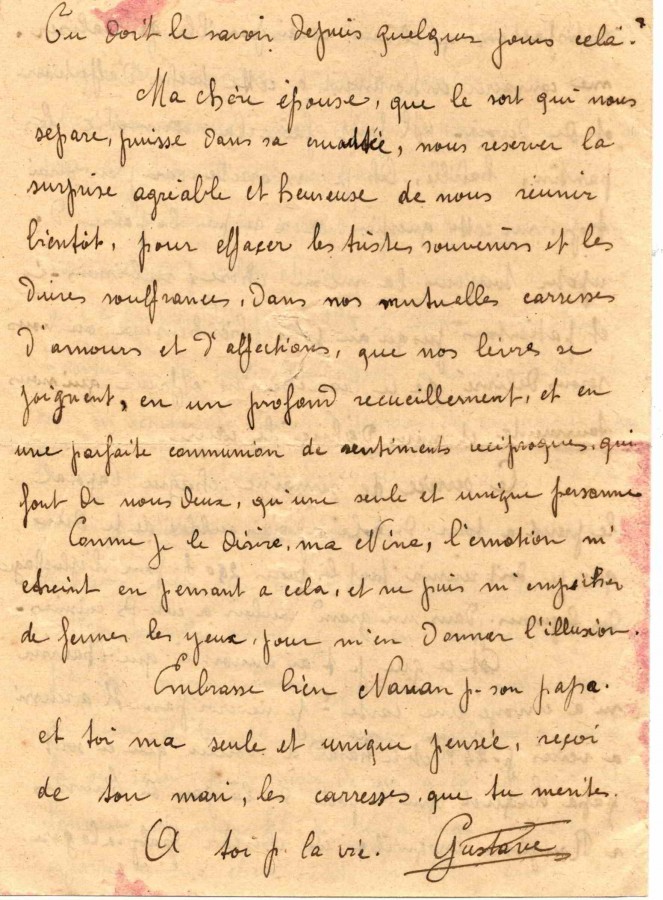 Tu doit le savoir depuis quelques jours cela.
Ma chère épouse, que le sort qui nous
separe, puisse dans sa cruautée, nous reserver la
surprise agréable et heureuse de nous reunir
bientôt, pour effacer les tristes souvenirs et les
dures souffrances, dans nos mutuelles carresses
d'amours et d'affections, que nos levres se
joignent, en un profond recueillement, et en
une parfaite communion de sentiments reciproques, qui
font de nous deux, qu'une seule et unique personne
Comme je le désire, ma Nine, l'emotion m'
etreint en pensant a cela, et ne puis m'empêcher
de fermer les yeux, pour m'en donner l'illusion.
Embrasse bien p. son papa.
et toi ma seule et unique pensée, reçoi
de ton mari, les carresses que tu merites.
A toi p. la vie. Gustave